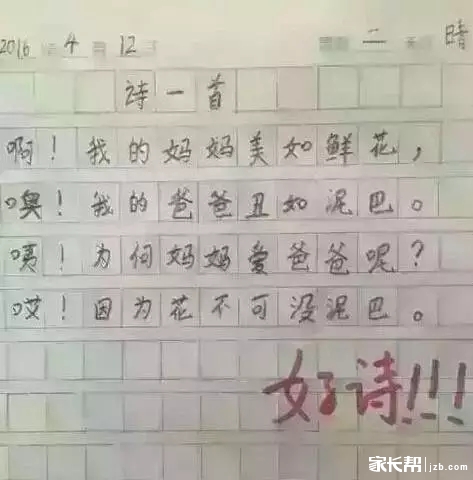 2016 年 4 月 12 日 星期 二 天气 晴
诗一首
啊！我的妈妈美如鲜花，
噢！我的爸爸丑如泥巴。
咦！为何妈妈爱爸爸呢？
哎！因为花不可没泥巴。
好诗!!!
家长帮 jzb.com